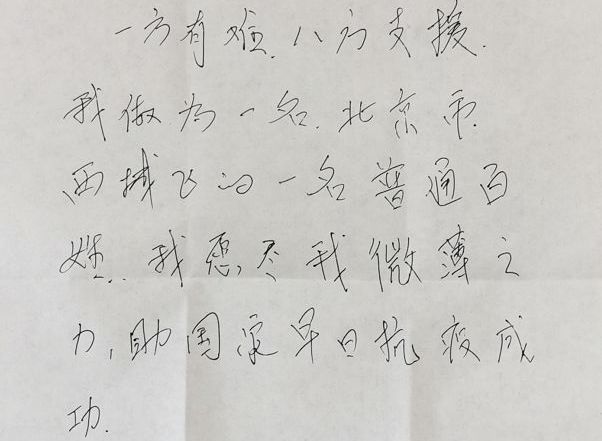 一方有难.八方支援.
我做为一名.北京市
西城区的一名普通百
姓.我愿尽我微薄之
力,助国家早日抗疫成
功.